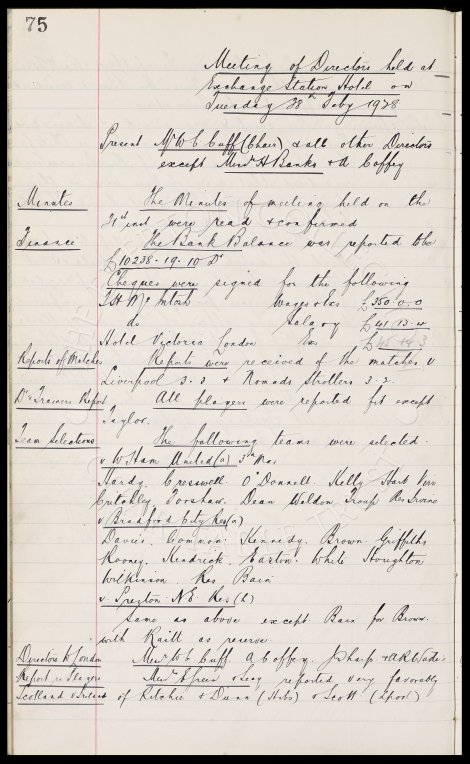 75
Meeting of Directors held at
Exchange Station Hotel on
Tuesday 28th Feby 1928
Present Mr W C Cuff (Chair) & all other Directors
except Messrs H Banks & A Coffey
Minutes The Minutes of meeting held on the
21st inst were read & confirmed
Finance The Bank Balance was reported to be
£10238.19.10 Dr
Cheques were signed for the following
T H McIntosh Wages &xs £350.0.0
do Salary
Hotel Victoria London xs
Reports of Matches Reports were received of the matches v
Liverpool 3.3 & Nomads Strollers 3.2.
Dr & Trainers Report All players were reported fit except
Taylor.
Team Selections The following teams were selected.
v W Ham United (a) 3rd Mar
Hardy. Cresswell. O'Donnell. Kelly Hart Virr
Critchley Forshaw. Dean Weldon Troup Res Irvine
v Bradford City Res (a)
Davies. Common. Kennedy. Brown. Griffiths
Rooney. Kendrick. Easton. White Houghton
Wilkinson. Res. Bain
v. Preston N.E. Res (h)
Same as above except Bain for Brown.
with Raitt as reserve
Directors to London Messrs W C Cuff. A Coffey. J Sharp & A R Wade.
Report re Players Messrs & Secy reported very favorably
Scotland & Ireland of Ritchie & Dunn (Hibs) & Scott (Lpool)